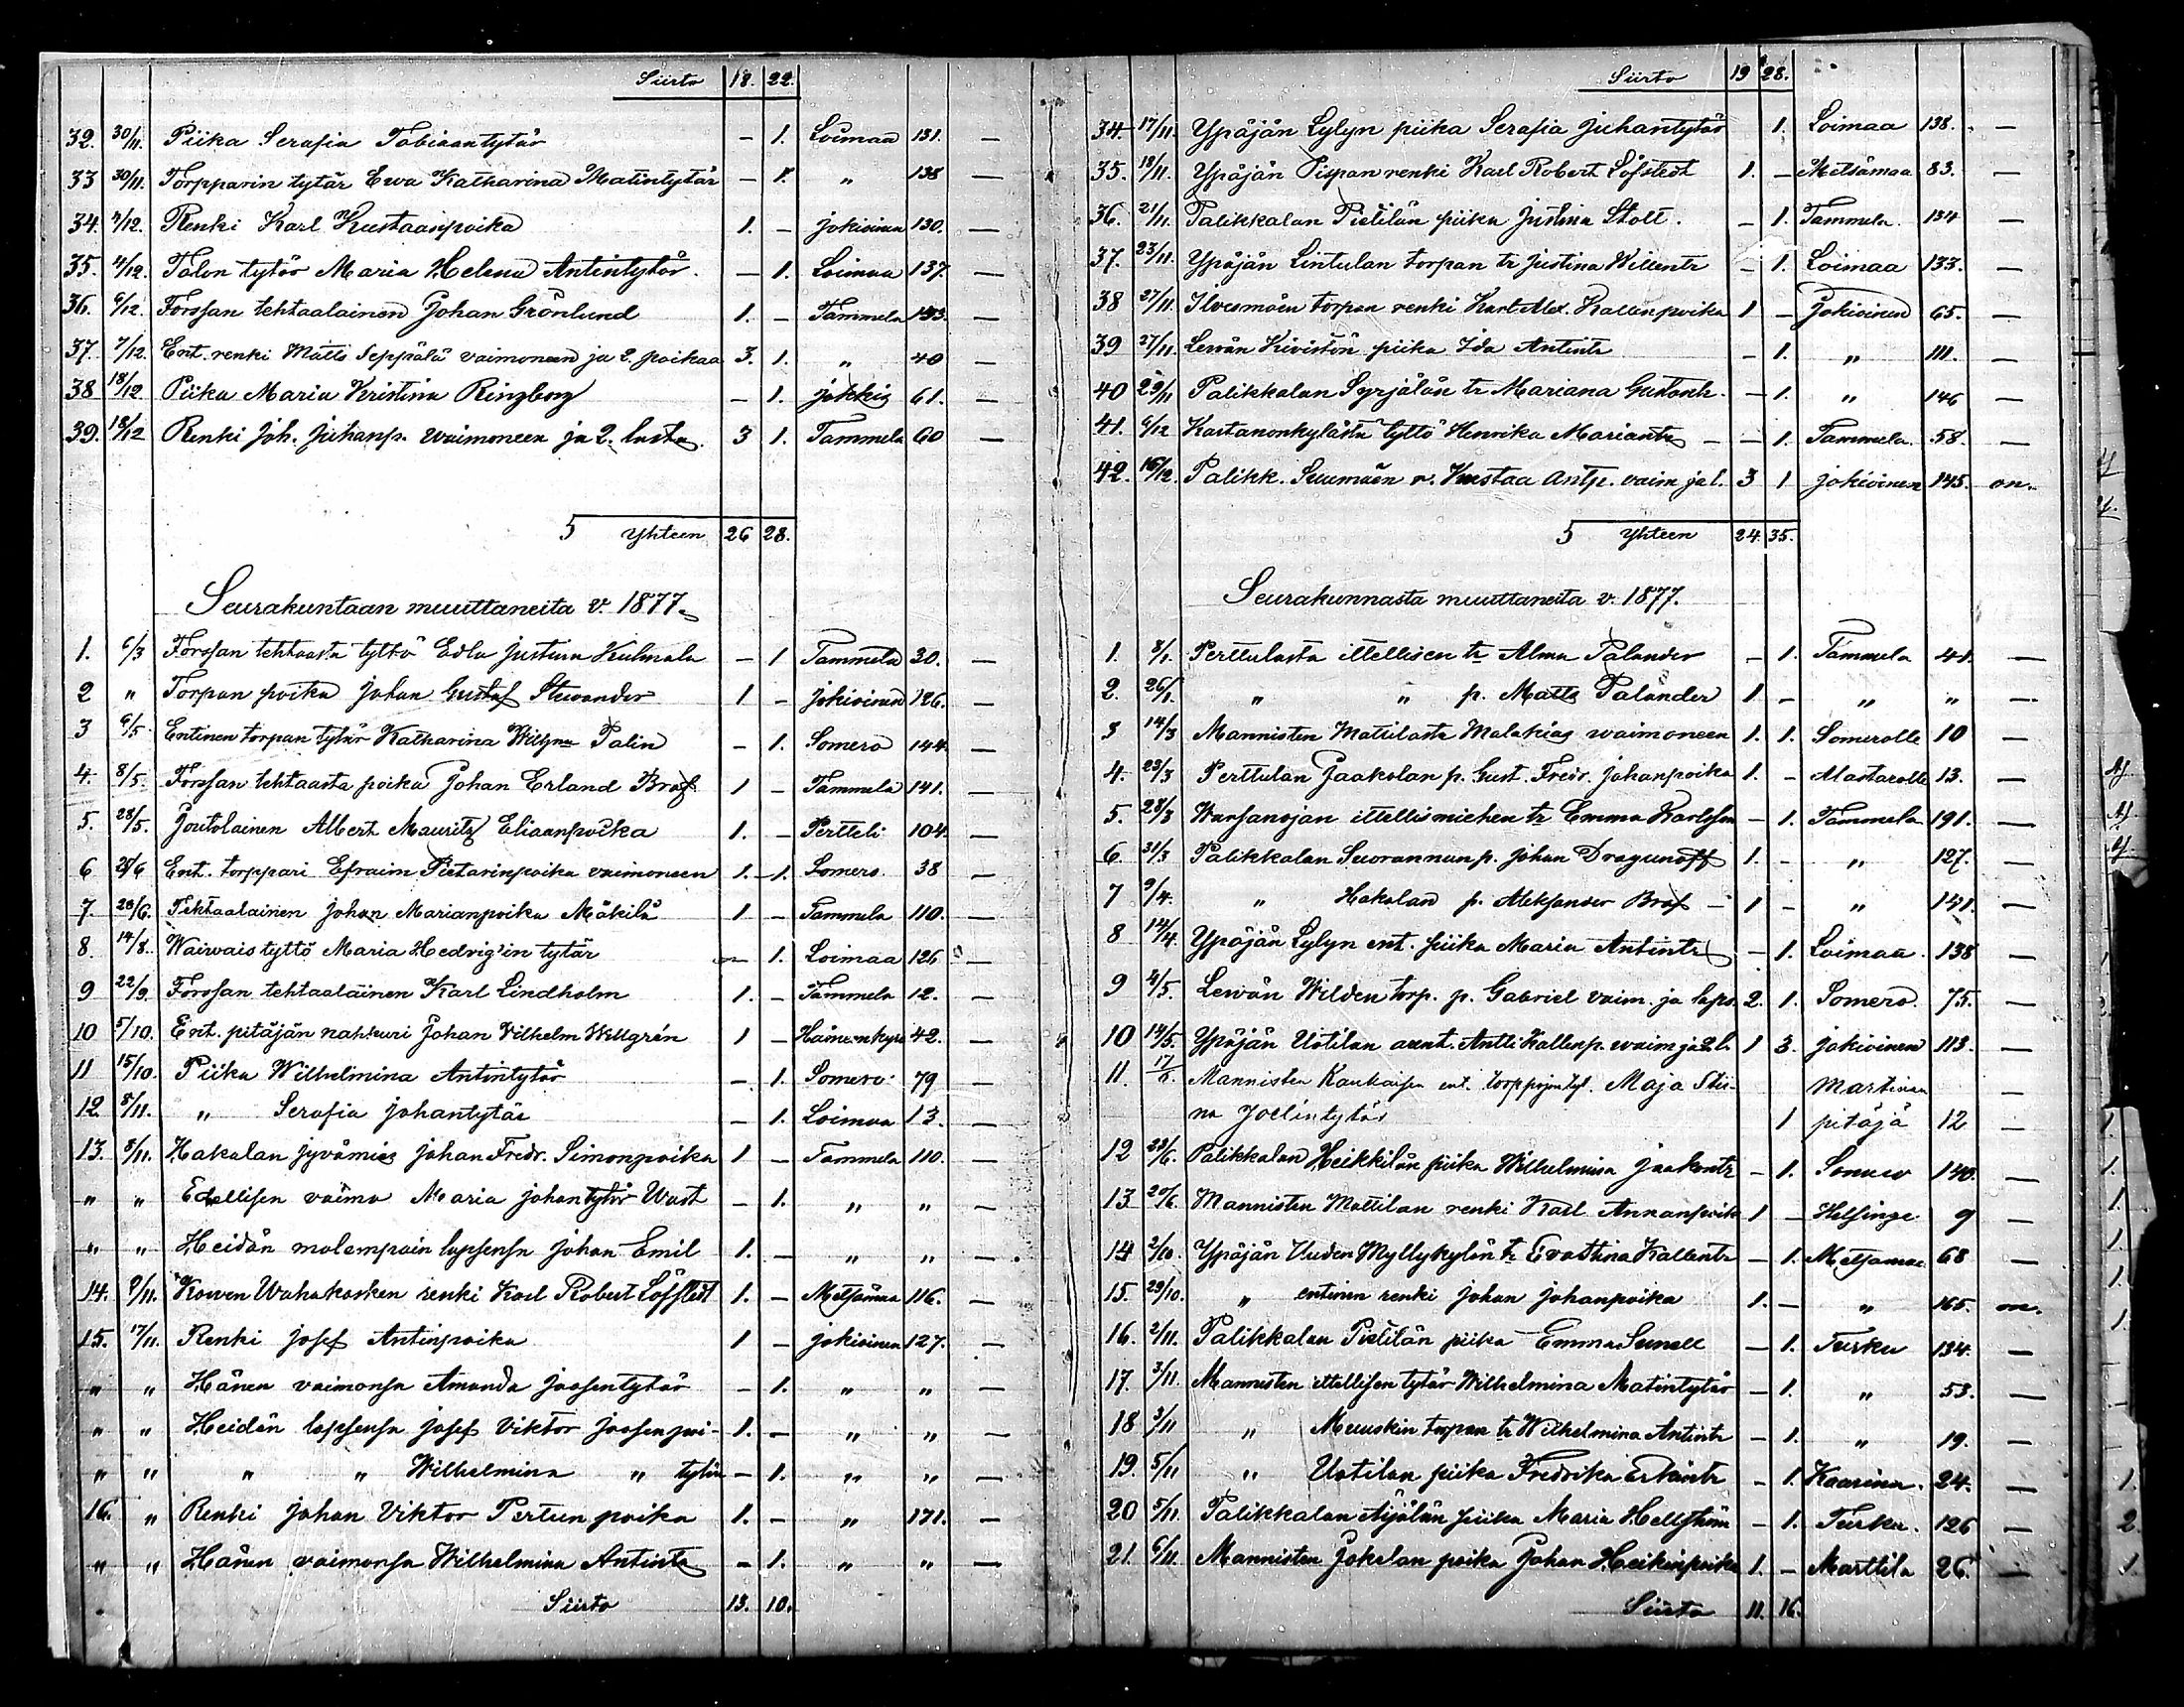 Siirto 18. 22.
32. 30/11. Piika Serafia Tobiaantytär — 1. Loimaa 131. —
33 30/11. Torpparin tytär Ewa Katharina Matintytär — 1. " 138 —
34. 4/12. Renki Karl Kustaanpoika 1. — Jokioinen 130. —
35. 4/12. Talon tytär Maria Helena Antintytär. — 1. Loimaa 137. —
36. 6/12. Forssan tehtaalainen Johan Grönlund 1. — Tammela 133. —
37. 7/12. Ent. renki Matts Seppälä vaimoneen ja 2. poikaa 3. 1. " 40
38 18/12 Piika Maria Kristina Ringborg — 1. Jokkis 61. —
39. 18/12 Renki Joh. Juhanp. vaimoneen ja 2. lasta. 3 1. Tammela 60 —
Yhteen 26 28.
Seurakuntaan muuttaneita v. 1877.
1. 6/3 Forssan tehtaasta tyttö Edla Justiina Kulmala — 1 Tammela 30. —
2 " Torpan poika Johan Gustaf Stewander 1 — Jokioinen 126. —
3 6/5. Entinen torpan tytär Katharina Wilhma Palin — 1. Somero 144. —
4. 8/5. Forssan tehtaasta poika Johan Erland Braf 1 — Tammela 141. —
5. 28/5. Joutolainen Albert Mauritz Eliaanpoika 1. — Pertteli 104. —
6 28/6 Ent. torppari Efraim Pietarinpoika vaimoneen 1. — 1. Somero. 38 —
7. 28/6. Tehtaalainen Johan Marianpoika Mäkilä 1 — Tammela 110. —
8. 14/8. Waivais tyttö Maria Hedvig'in tytär — 1. Loimaa 126 —
9 22/9. Forssan tehtaalainen Karl Lindholm 1. — Tammela 12. —
10 5/10. Ent. pitäjän nahkuri Johan Vilhelm Willgrén 1 — Hämeenkyrö 42. —
11 15/10. Piika Wilhelmina Antintytär — 1. Somero 79 —
12 8/11. " Serafia Johantytär — 1. Loimaa 13. —
13. 8/11. Hakalan jyvämies Johan Fredr. Simonpoika 1 — Tammela 110. —
" " Edellisen vaimo Maria Johantytär Wast — 1. " " —
" " Heidän molempain lapsensa Johan Emil 1. — " " —
14. 9/11. Kowen Wahakosken renki Karl Robert Löfstedt 1. — Metsämaa 116. —
15. 17/11. Renki Josef Antinpoika 1 — Jokioinen 127. —
" " Hänen vaimonsa Amanda Joosentytär — 1. " " —
" " Heidän lapsensa Josef Viktor Joosenpoi- 1. — " " —
" " " " Wilhelmina " tytär — 1. " " —
16. " Renki Johan Viktor Pertun poika 1. — " 171. —
" " Hänen vaimonsa Wilhelmina Antintr — 1. " " —
Siirto 13. 10.
Siirto 19 28.
34 17/11. Ypäjän Lylyn piika Serafia Juhantytär 1. Loimaa 138. —
35. 18/11. Ypäjän Pispan renki Karl Robert Löfstedt 1. — Metsämaa 83. —
36. 21/11. Palikkalan Pietilän piika Justina Stolt. — 1. Tammela. 134 —
37. 23/11. Ypäjän Lintulan torpan tr Justina Willentr — 1. Loimaa 133. —
38 27/11. Ilvesmäen torpan renki Karl Alex. Kallenpoika 1 — Jokioinen 65. —
39 27/11. Lewän Kivistön piika Ida Antintr — 1. " 111. —
40 29/11 Palikkalan Syrjälän tr Mariana Gustavtr. — 1. " 146 —
41. 6/12 Kartanonkylästä tyttö Henrika Mariantr — — 1. Tammela. 58. —
42. 16/12. Palikk. Suumäen r. Kustaa Antp. vaim ja l. 3 1 Jokioinen 145. on.
Yhteen 24. 35.
Seurakunnasta muuttaneita v. 1877.
1. 8/1. Perttulasta itellisen tr Alma Palander — 1. Tammela 41. —
2. 26/1. " " p. Matts Palander 1 — " " —
3 14/3 Mannisten Mattilasta Malakias vaimoneen 1. 1. Somerolle 10 —
4. 23/3 Perttulan Jaakolan p. Gust. Fredr. Johanpoika 1. — Alastarolle 13. —
5. 28/3 Warsanojan itellismiehen tr Emma Karlsson — 1. Tammela 191. —
6. 31/3 Palikkalan Suorannun p. Johan Dragunoff 1. — " 127. —
7 9/4. " Hakalan p. Aleksander Braf — 1 — " 141. —
8 12/4. Ypäjän Lylyn ent. piika Maria Antintr — 1. Loimaa. 138 —
9 4/5. Lewän Wilden torp. p. Gabriel vaim. ja laps. 2. 1. Somero. 75. —
10 14/5. Ypäjän Uotilan Antti Kallenp. vaim ja 2 l. 1 3. Jokioinen 113. —
11. Mannisten ent. Maja Stii- Martinan —
na Joelintytär 1 pitäjä 12 —
12 28/6. Palikkalan Heikkilän piika Wilhelmina Jaakontr — 1. Somero 140. —
13 20/6. Mannisten Mattilan renki Karl Annanpoik 1 — Helsinge 9 —
14 2/10. Ypäjän Uuden Myllykylän tr Eva Stina Kallentr — 1. Metsämaa 68 —
15. 29/10. " entinen renki Johan Johanpoika 1. — " 165. on.
16. 2/11. Palikkalan Pietilän piika Emma Sunell — 1. Turku 134. —
17. 3/11. Mannisten itellisen tytär Wilhelmina Matintytär — 1. " 53. —
18 3/11 " Muuskin torpan tr Wilhelmina Antintr — 1. " 19. —
19. 5/11 " Uotilan piika Fredrika Erkintr — 1. Kaarina. 24. —
20 5/11. Palikkalan Äijälän piika Maria Hellström — 1. Turku. 126 —
21. 6/11. Mannisten Jokelan poika Johan Heikinpoika 1. — Marttila 26. —
Siirto 11. 16.